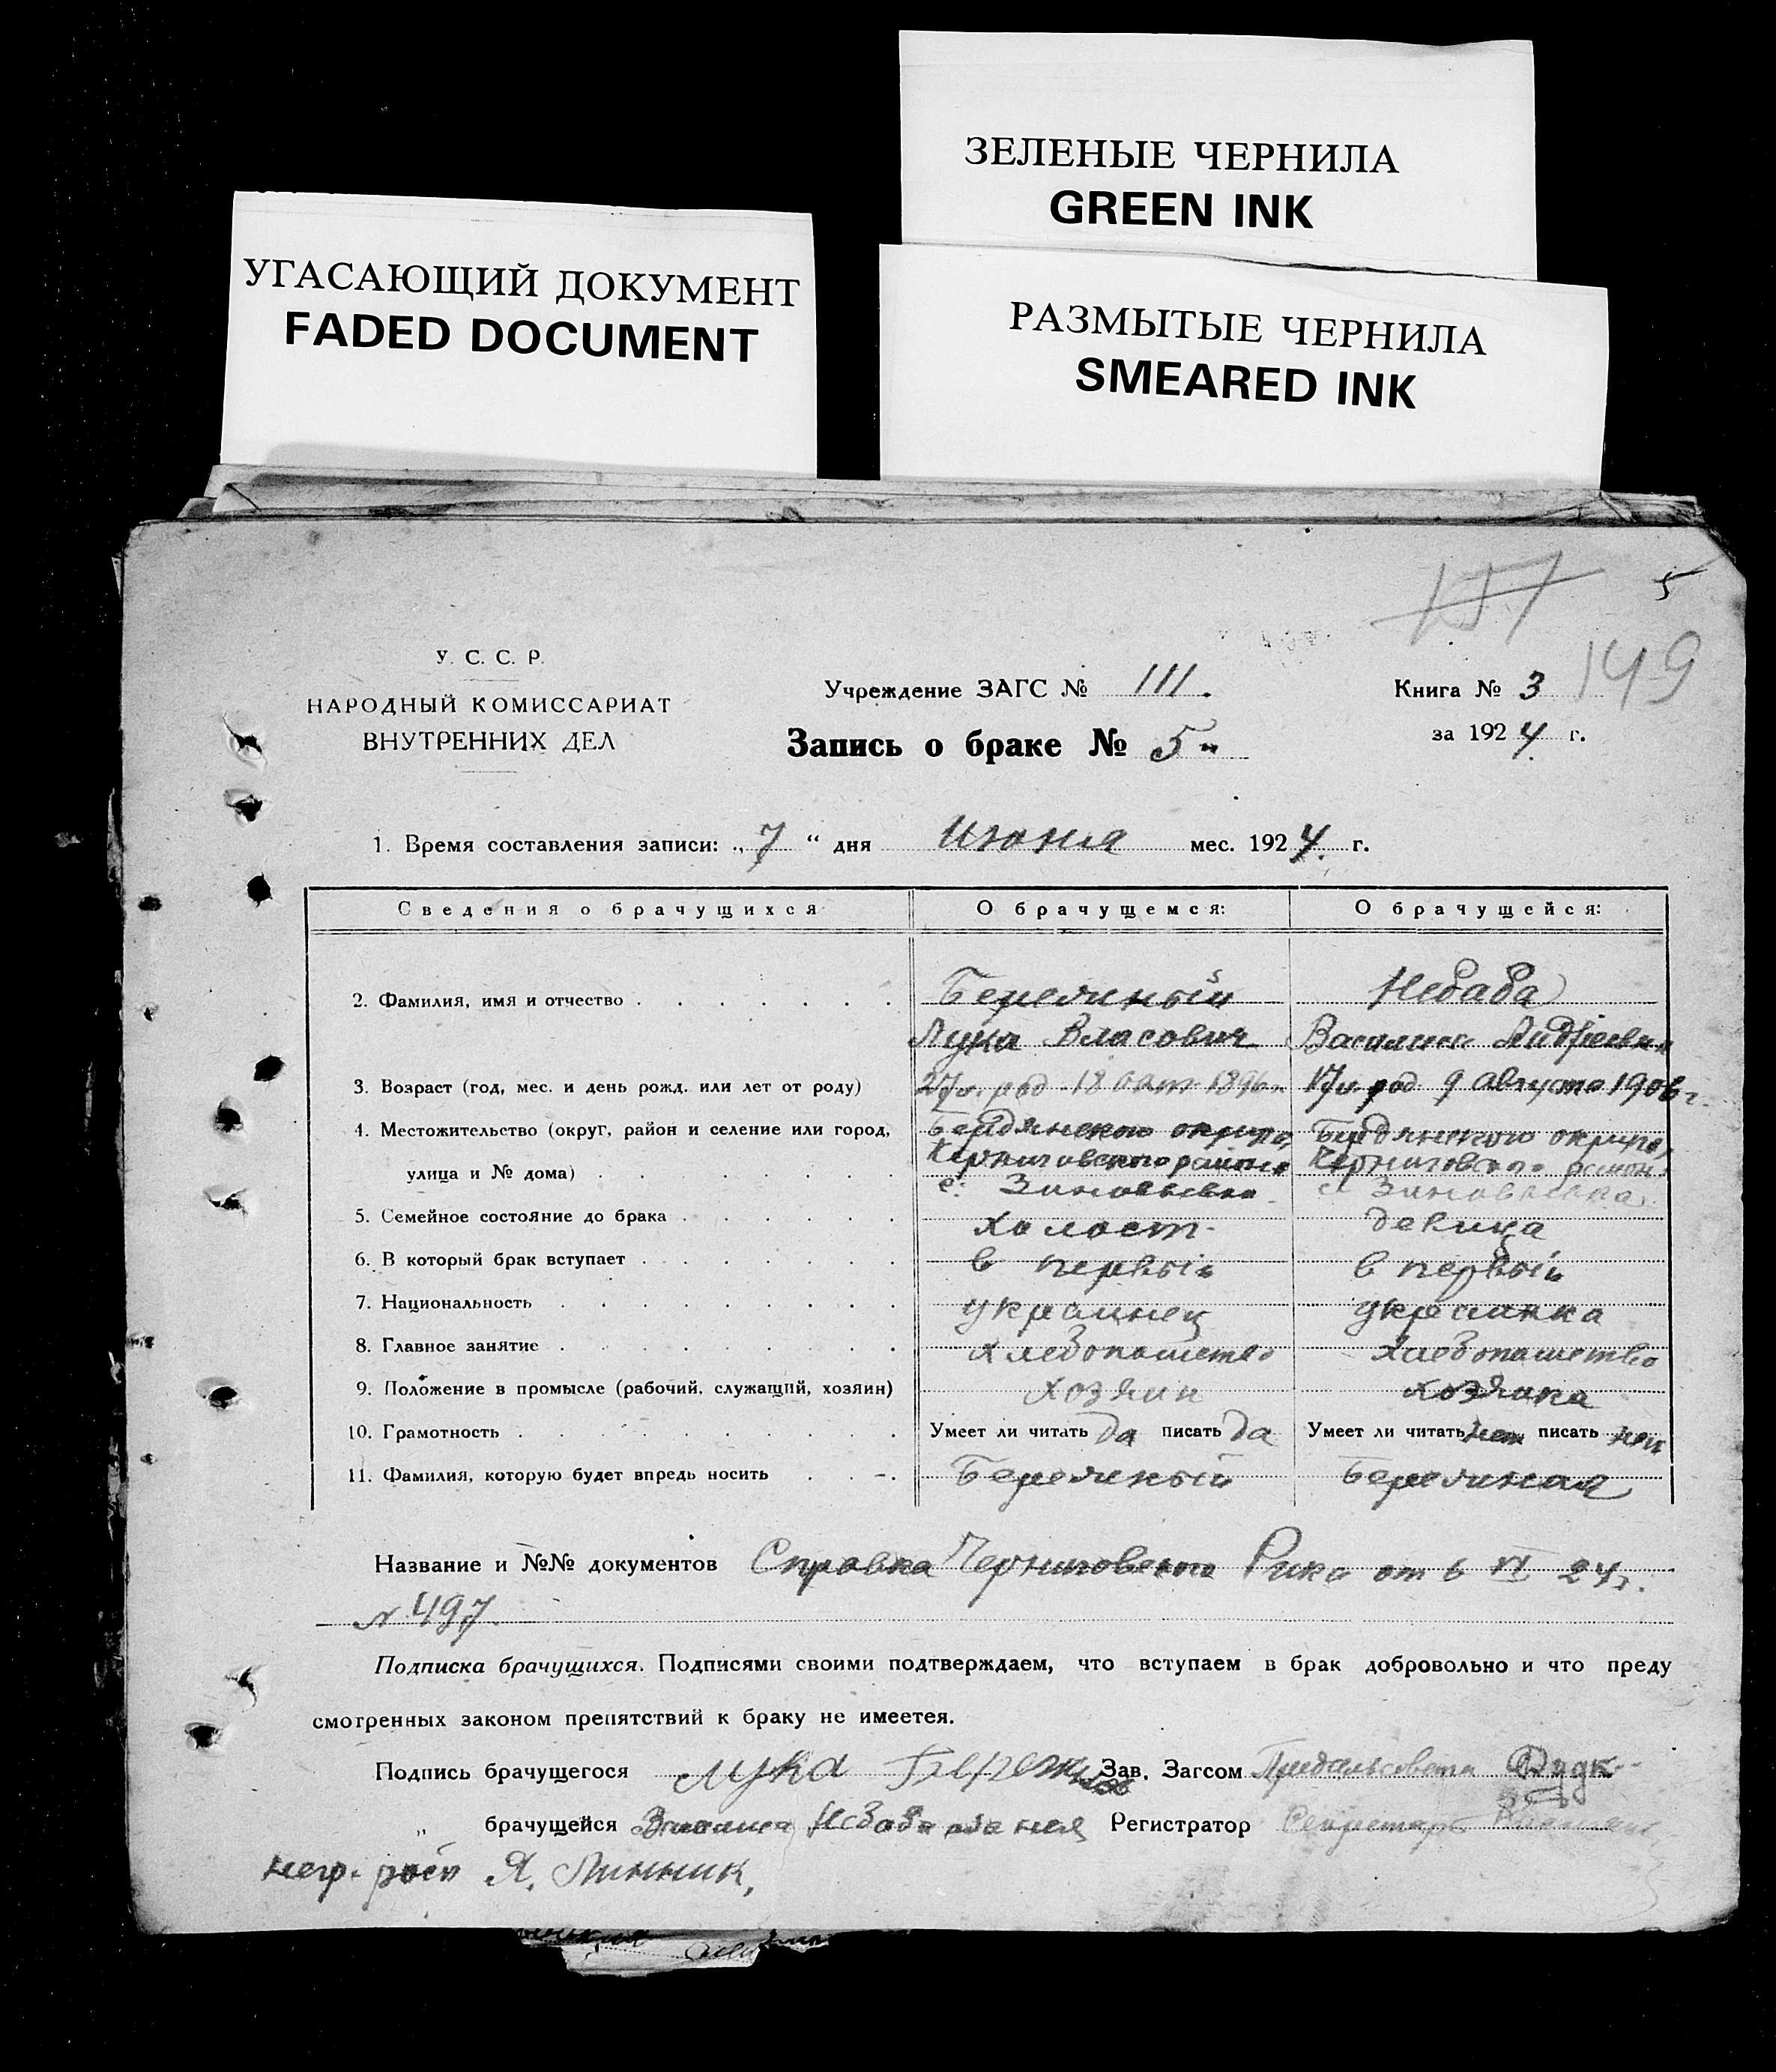 ЗЕЛЕНЫЕ ЧЕРНИЛА
GREEN INK
УГАСАЮЩИЙ ДОКУМЕНТ
FADED DOCUMENT
РАЗМЫТЫЕ ЧЕРНИЛА
SMEARED INK
5
149
У. С. С. Р.
НАРОДНЫЙ КОМИССАРИАТ
ВНУТРЕННИХ ДЕЛ
Учреждение ЗАГС № 111.
Запись о браке № 5
Книга № 3
за 1924 г.
1. Время составления записи: „7“ дня Июня мес. 1924 г.
Сведения о брачущихся О брачущемся: О брачущейся:
2. Фамилия, имя и отчество Бережный Небаба
Лука Власович Василиса
3. Возраст (год, мес. и день рожд. или лет от роду) 27 л. род. 18 окт. 1896 г. 17 л. род. 9 августа 1906 г.
4. Местожительство (округ, район и селение или город, Бердянского округа, Бердянского округа,
улица и № дома) Черниговского района Черниговского район.
с. Зиновьевка с. Зиновьевка
5. Семейное состояние до брака холост девица
6. В который брак вступает в первый в первый
7. Национальность украинец украинка
8. Главное занятие хлебопашество хлебопашество
9. Положение в промысле (рабочий, служащий, хозяин) хозяин хозяйка
10. Грамотность Умеет ли читать да писать да Умеет ли читать нет писать нет
11. Фамилия, которую будет впредь носить Бережный Бережная
Название и №№ документов Справка Черниговского Рика от 6 VI 24 г.
№ 497.
Подписка брачущихся. Подписями своими подтверждаем, что вступаем в брак добровольно и что преду
смотренных законом препятствий к браку не имеется.
Подпись брачущегося Лука Зав. Загсом Предсельсовета
„ брачущейся Василиса Небаба за нея Регистратор Секретарь
негр. росп Я. Линник,